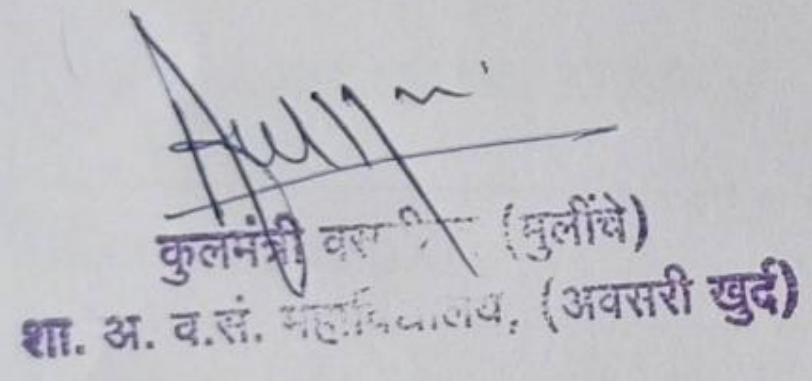 कुलमंत्री (मुलींचे)
शा. अ. व.सं. महाविद्यालय, (अवसरी खुर्द)